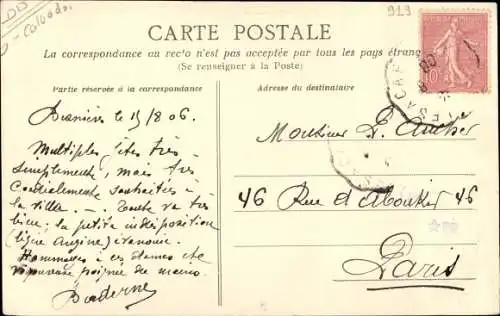 Calvados
919
CARTE POSTALE
La correspondance au recto n'est pas acceptée par tous les pays étrang
(Se renseigner à la Poste)
Partie réservée à la correspondance
Adresse du destinataire
10
le 15/8 06.
Multiples très
simplement, mais très
Cordialement souhaités à
la ville. - Toute va très
bien; la petite indisposition
(légère Angine) évanouie.
Hommages à ces dames et
vigoureuse poignée de mains.
Monsieur
46 Rue d'Aboukir 46
Paris